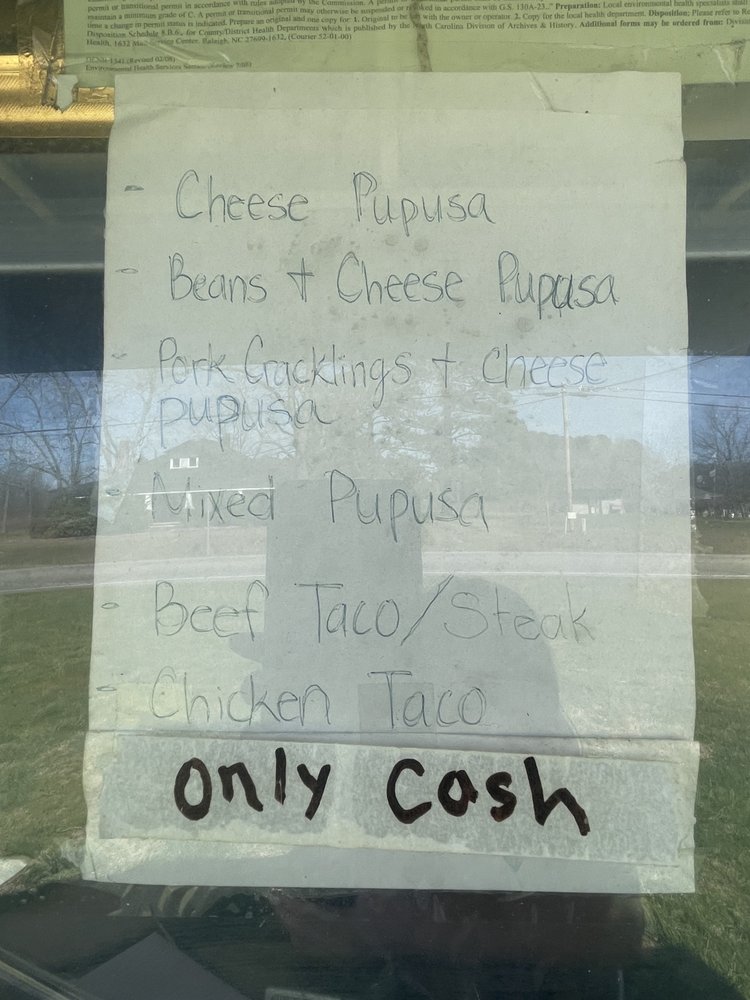 permit or transitional permit in accordance with rules adopted by the Commission. A permit or
maintain a minimum grade of C. A permit or transitional permit may otherwise be suspended or revoked in accordance with G.S. 130A-23." Preparation: Local environmental health specialists shall
time a change in permit status is indicated. Prepare an original and one copy for: 1. Original to be left with the owner or operator. 2. Copy for the local health department. Disposition: Please refer to
Disposition Schedule 8.B.6., for County/District Health Departments which is published by the North Carolina Division of Archives & History. Additional forms may be ordered from:
Health, 1632 Mail Service Center, Raleigh, NC 27699-1632, (Courier 52-01-00)
(Revised 02/08)
Environmental Health Services Section
- Cheese Pupusa
- Beans + Cheese Pupusa
- Pork Cracklings + Cheese
pupusa
- Mixed Pupusa
- Beef Taco/Steak
- Chicken Taco
Only Cash